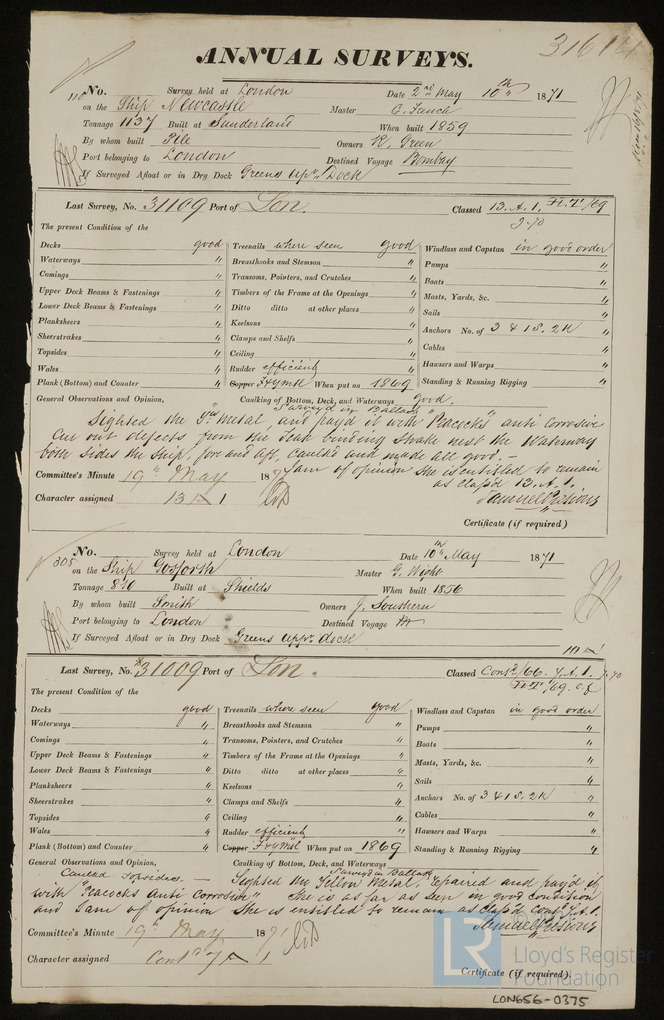 31614
ANNUAL SURVEYS.
110 No. Survey held at London Date 2nd May 10th 1871
on the Ship Newcastle Master C. Fanch
Tonnage 1137 Built at Sunderland When built 1859
By whom built Pile Owners R. Green
Port belonging to London Destined Voyage Bombay
If Surveyed Afloat or in Dry Dock Greens Upr. Dock
Last Survey, No. 31109 Port of Lon. Classed 13.A.1. /69
3.70
The present Condition of the
Decks good Treenails where seen good Windlass and Capstan in good order
Waterways " Breasthooks and Stemson " Pumps "
Comings " Transoms, Pointers, and Crutches " Boats "
Upper Deck Beams & Fastenings " Timbers of the Frame at the Openings " Masts, Yards, &c. "
Lower Deck Beams & Fastenings " Ditto ditto at other places " Sails "
Planksheers " Keelsons " Anchors No. of 3 & 1 S, 2 K "
Sheerstrakes " Clamps and Shelfs " Cables "
Topsides " Ceiling " Hawsers and Warps "
Wales " Rudder efficient Standing & Running Rigging "
Plank (Bottom) and Counter " Copper F & YMtl When put on 1869
General Observations and Opinion, Caulking of Bottom, Deck, and Waterways good.
Surveyd in Ballast
Sighted the Y. Metal, and payd it with "Peacocks" anti corrosive
Cut out defects from the Teak binding Strake next the Waterway
both sides the Ship, fore and aft, caulkd and made all good. —
I am of opinion She is entitled to remain
as classd 13.A.1.
Committee's Minute 19th May 187
Character assigned 13 A 1
Certificate (if required)
305 No. Survey held at London Date 10th May 1871
on the Ship Gosforth Master G. Wight
Tonnage 810 Built at Shields When built 1856
By whom built Smith Owners J. Southern
Port belonging to London Destined Voyage
If Surveyed Afloat or in Dry Dock Greens uppr dock
Last Survey, No. 31009 Port of Lon. Classed Contd/66. 7.A.1. 7.70
/69. C.f
The present Condition of the
Decks good Treenails where seen good Windlass and Capstan in good order
Waterways " Breasthooks and Stemson " Pumps "
Comings " Transoms, Pointers, and Crutches " Boats "
Upper Deck Beams & Fastenings " Timbers of the Frame at the Openings " Masts, Yards, &c. "
Lower Deck Beams & Fastenings " Ditto ditto at other places " Sails "
Planksheers " Keelsons " Anchors No. of 3 & 1 S, 2 K "
Sheerstrakes " Clamps and Shelfs " Cables "
Topsides " Ceiling " Hawsers and Warps "
Wales " Rudder efficient " Standing & Running Rigging "
Plank (Bottom) and Counter " Copper F & YMtl When put on 1869
General Observations and Opinion, Caulking of Bottom, Deck, and Waterways
Surveyd in Ballast
Caulkd Topsides. — Sighted the Yellow Metal, repaired and payd it
with "Peacocks Anti Corrosion" She is as far as seen in good condition
and I am of opinion She is entitled to remain as classd Contd 7.A.1.
Committee's Minute 19th May 1871
Character assigned Contd 7 A 1
Certificate (if required).
LR
Lloyd's Register
Foundation
LON656-0375